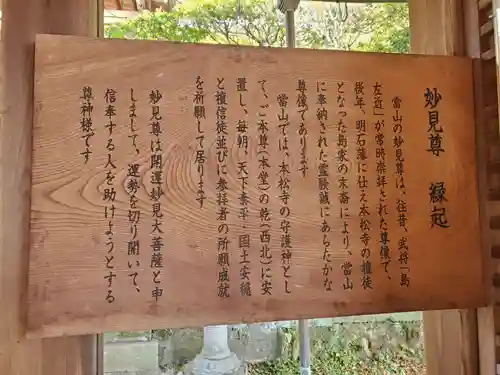 妙見尊 縁起
當山の妙見尊は、往昔、武将「島
左近」が常時崇拝された尊像で、
後年、明石藩に仕え本松寺の檀徒
となった島家の末裔により、當山
に奉納された霊験誠にあらたかな
尊像であります
當山では、本松寺の守護神とし
て、ご本尊(本堂)の乾(西北)に安
置し、毎朝、天下泰平・国土安穏
と檀信徒並びに参拝者の所願成就
を祈願して居ります
妙見尊は開運妙見大菩薩と申
しまして、運勢を切り開いて、
信奉する人を助けようとする
尊神様です